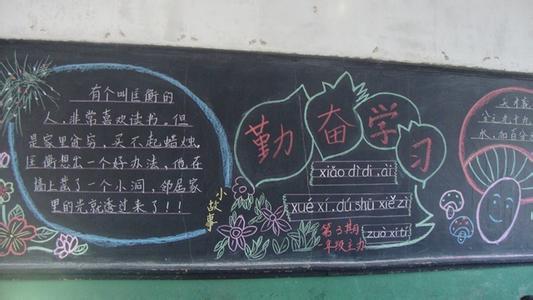 有个叫匡衡的
人，非常喜欢读书。但
是家里贫穷，买不起蜡烛。
匡衡想出一个好办法，他在
墙上凿了一个小洞，邻居家
里的光就透过来了！！
小故事
勤奋学习
xiǎo dì di , ài
xué xí , dú shū xiě zì
zuò xí tí
第3期
年级主办
天才就
水，加百分